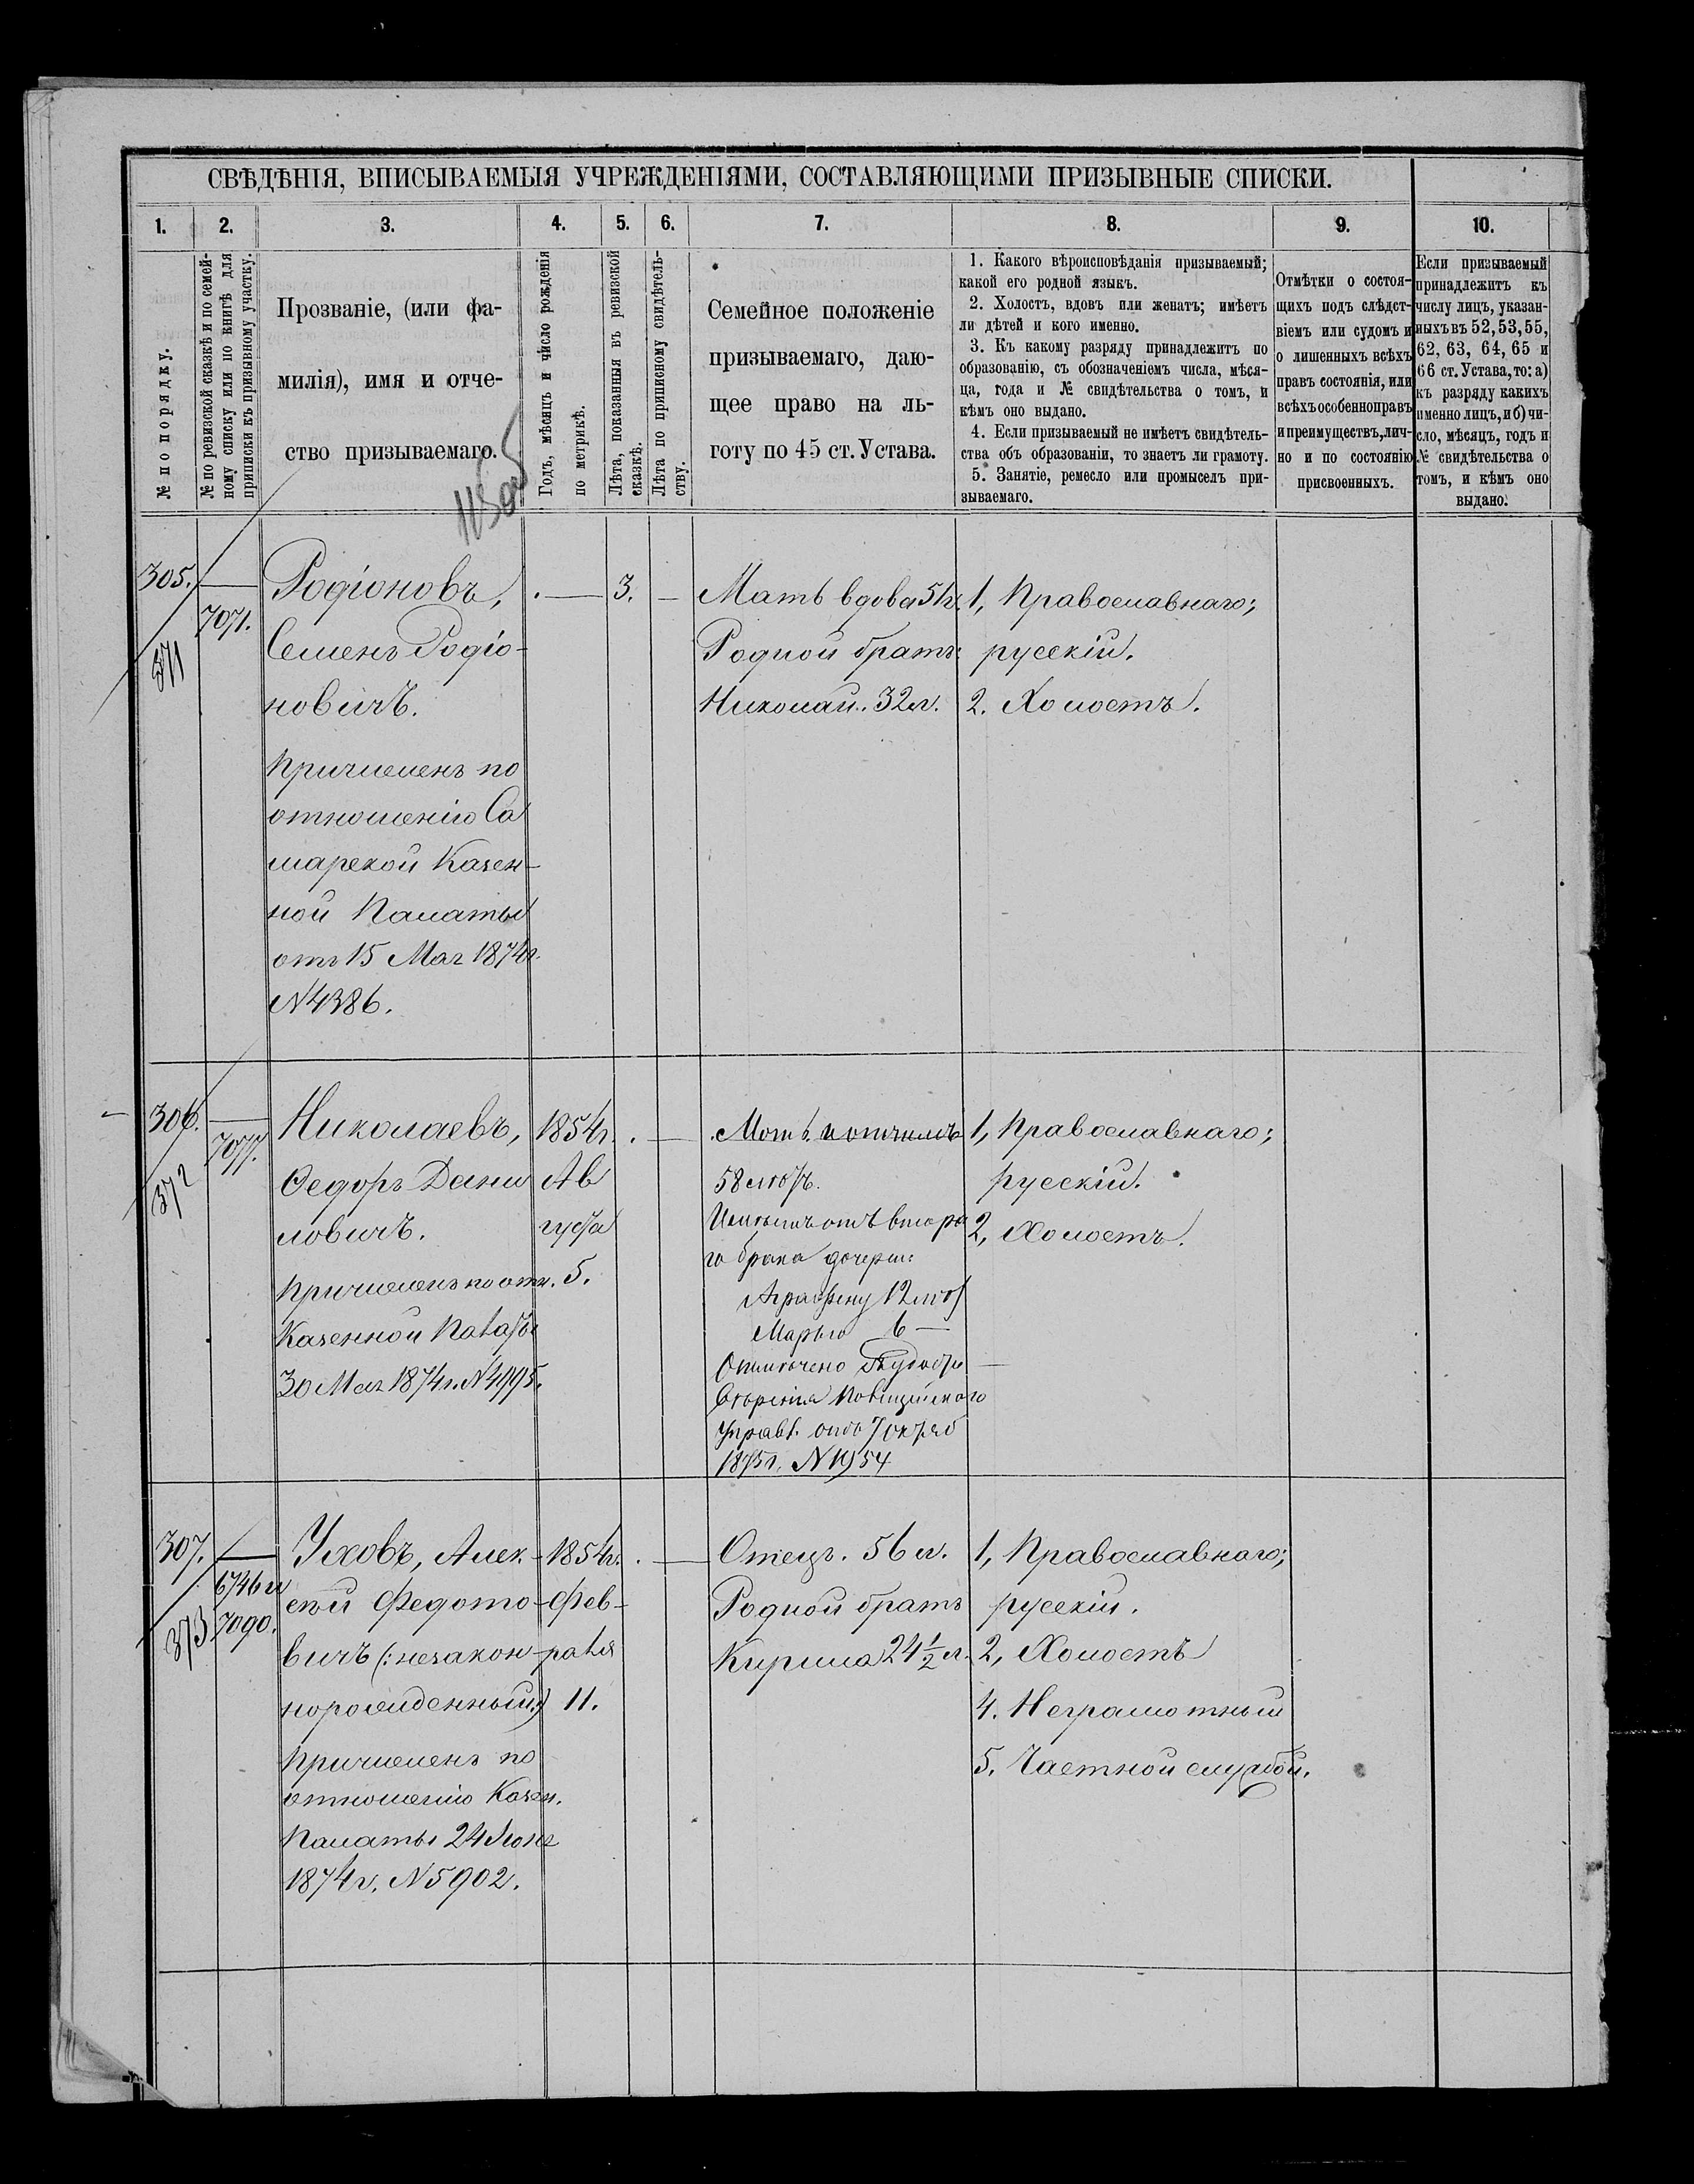 СВѢДѢНІЯ, ВПИСЫВАЕМЫЯ УЧРЕЖДЕНІЯМИ, СОСТАВЛЯЮЩИМИ ПРИЗЫВНЫЕ СПИСКИ.
1.
2.
3.
4.
5.
6.
7.
8.
9.
10.
№ по порядку.
№ по ревизской сказкѣ и по семей-
ному списку или по книгѣ для
приписки къ призывному участку.
Прозваніе, (или фа-
милія), имя и отче-
ство призываемаго.
Годъ, мѣсяцъ и число рожденія
по метрикѣ.
Лѣта, показанныя въ ревизской
сказкѣ.
Лѣта по приписному свидѣтель-
ству.
Семейное положеніе
призываемаго, даю-
щее право на ль-
готу по 45 ст. Устава.
1. Какого вѣроисповѣданія призываемый;
какой его родной языкъ.
2. Холостъ, вдовъ или женатъ; имѣетъ
ли дѣтей и кого именно.
3. Къ какому разряду принадлежитъ по
образованію, съ обозначеніемъ числа, мѣся-
ца, года и № свидѣтельства о томъ, и
кѣмъ оно выдано.
4. Если призываемый не имѣетъ свидѣтель-
ства объ образованіи, то знаетъ ли грамоту.
5. Занятіе, ремесло или промыселъ при-
зываемаго.
Отмѣтки о состоя-
щихъ подъ слѣдст-
віемъ или судомъ и
о лишенныхъ всѣхъ
правъ состоянія, или
всѣхъ особенноправъ
и преимуществъ, лич-
но и по состоянію
присвоенныхъ.
Если призываемый
принадлежитъ къ
числу лицъ, указан-
ныхъ въ 52, 53, 55,
62, 63, 64, 65 и
66 ст. Устава, то: а)
къ разряду какихъ
именно лицъ, и б) чи-
сло, мѣсяцъ, годъ и
№ свидѣтельства о
томъ, и кѣмъ оно
выдано.
305.
371
7071.
Родіоновъ,
Семенъ Родіо-
новичъ.
Причисленъ по
отношенію Са
марской Казен-
ной Палаты
отъ 15 Мая 1874г.
№4386.
3.
Мать вдова 51г.
Родной братъ:
Николай. 32л.
1, Православнаго;
русскій.
2. Холостъ.
306.
372
7077.
Николаевъ,
Ѳедоръ Дани
ловичъ.
Причисленъ по отн.
Казенной Палаты
30 Мая 1874г. №4995.
1854г.
Ав
густа
5.
Мать
58 лѣтъ.
отъ втора
го брака дочери:
Аграфену 12 лѣт
Марью 6 —
Отмѣчено
управл. отъ 7 октяб
1875г. №1954
1, Православнаго;
русскій.
2, Холостъ.
307.
373
6746 и
7090.
Уховъ, Алек-
сѣй Федото-
вичъ (: незакон-
норожденный:)
Причисленъ по
отношенію Казен.
Палаты 24 Іюня
1874г. №5902.
1854г.
Фев-
раля
11.
Отецъ. 56 л.
Родной братъ
Кирила 24 1/2 л.
1, Православнаго;
русскій.
2, Холостъ
4. Неграмотный
5. Частной службой.